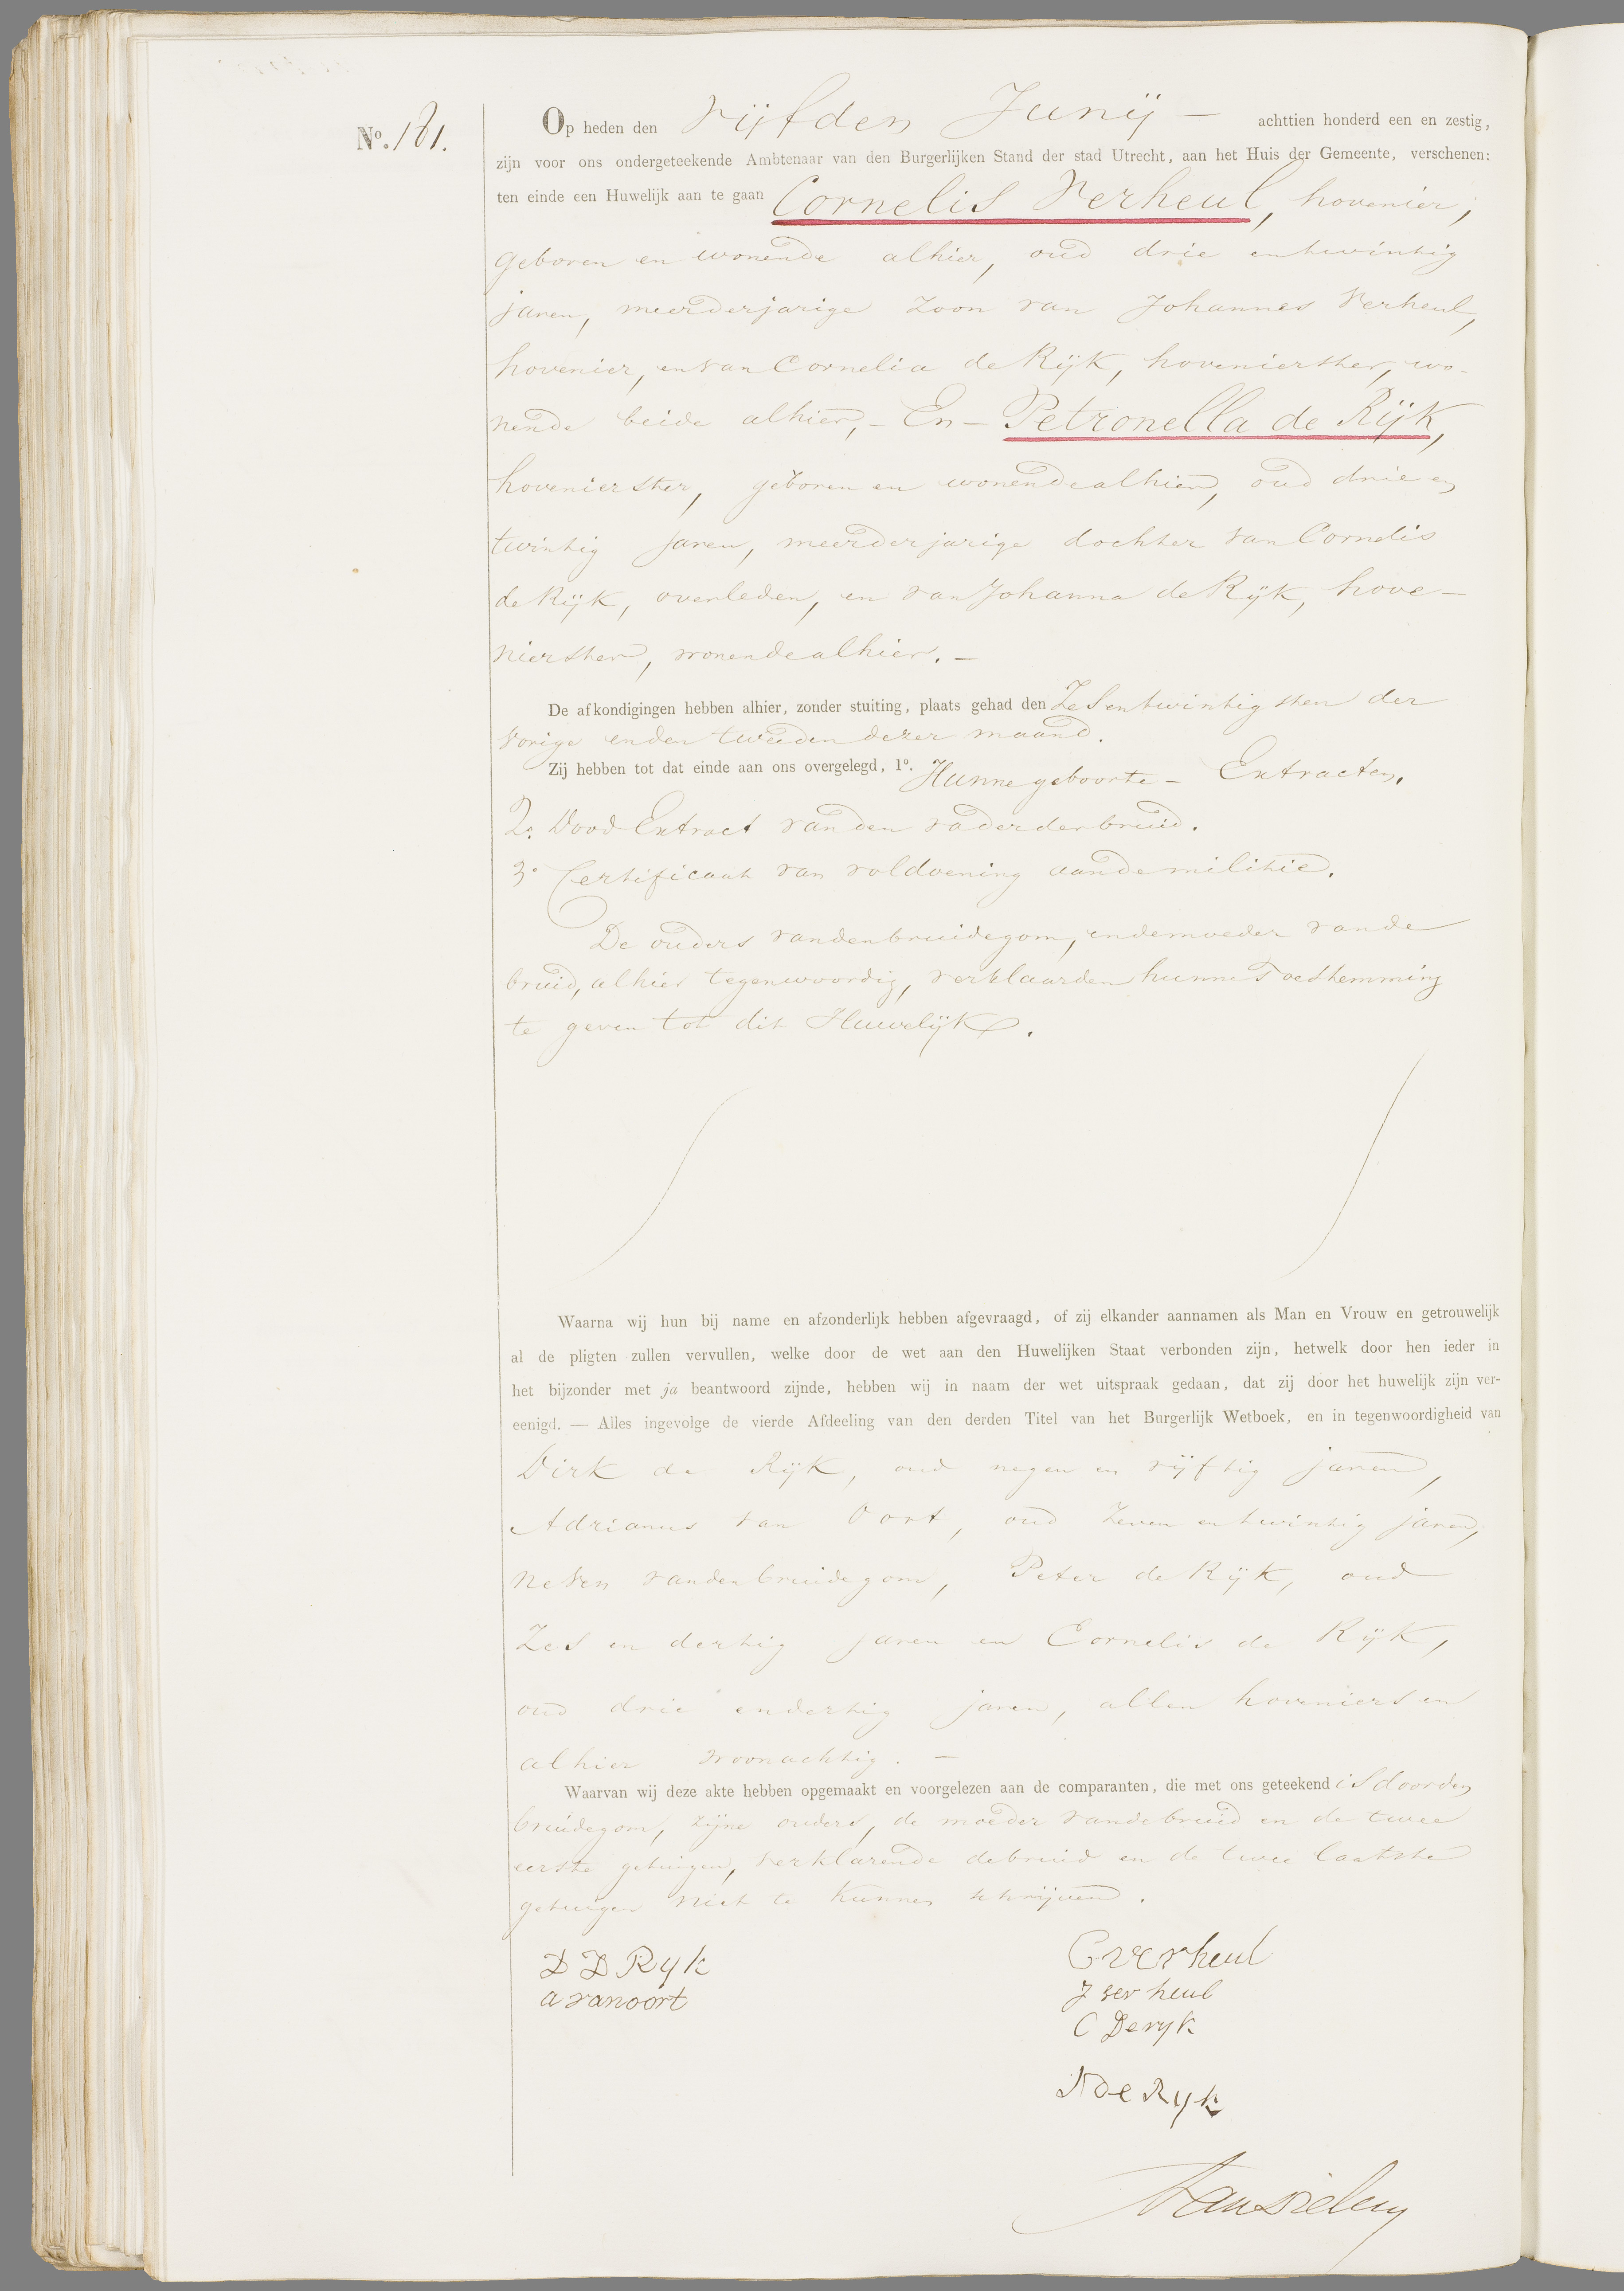 No. 181.
Op heden den vijfden Junij — achttien honderd een en zestig,
zijn voor ons ondergeteekende Ambtenaar van den Burgerlijken Stand der stad Utrecht, aan het Huis der Gemeente, verschenen:
ten einde een Huwelijk aan te gaan Cornelis Verheul, hovenier,
geboren en wonende alhier, oud drie en twintig
jaren, meerderjarige zoon van Johannes Verheul,
hovenier, en van Cornelia de Rijk, hovenierster, wo-
nende beide alhier, – En – Petronella de Rijk,
hovenierster, geboren en wonende alhier, oud drie en
twintig jaren, meerderjarige dochter van Cornelis
de Rijk, overleden, en van Johanna de Rijk, hove-
nierster, wonende alhier. –
De afkondigingen hebben alhier, zonder stuiting, plaats gehad den Zes en twintigsten der
vorige en den tweeden dezer maand.
Zij hebben tot dat einde aan ons overgelegd, 1o. Hunne geboorte – Extracten.
2o. Dood Extract van den vader der bruid.
3o Certificaat van voldoening aan de militie.
De ouders van den bruidegom, en de moeder van de
bruid, alhier tegenwoordig, verklaarden hunne Toestemming
te geven tot dit Huwelijk.
Waarna wij hun bij name en afzonderlijk hebben afgevraagd, of zij elkander aannamen als Man en Vrouw en getrouwelijk
al de pligten zullen vervullen, welke door de wet aan den Huwelijken Staat verbonden zijn, hetwelk door hen ieder in
het bijzonder met ja beantwoord zijnde, hebben wij in naam der wet uitspraak gedaan, dat zij door het huwelijk zijn ver-
eenigd. — Alles ingevolge de vierde Afdeeling van den derden Titel van het Burgerlijk Wetboek, en in tegenwoordigheid van
Dirk de Rijk, oud negen en vijftig jaren,
Adrianus van Oort, oud Zeven en twintig jaren,
neven van den bruidegom, Peter de Rijk, oud
Zes en dertig jaren en Cornelis de Rijk,
oud drie en dertig jaren, allen hoveniers en
alhier woonachtig. –
Waarvan wij deze akte hebben opgemaakt en voorgelezen aan de comparanten, die met ons geteekend is door den
bruidegom, zijne ouders, de moeder van de bruid en de twee
eerste getuigen, verklarende de bruid en de twee laatste
getuigen niet te kunnen schrijven.
D D Ryk
a van oort
C verheul
J verheul
C Deryk
J de Ryk